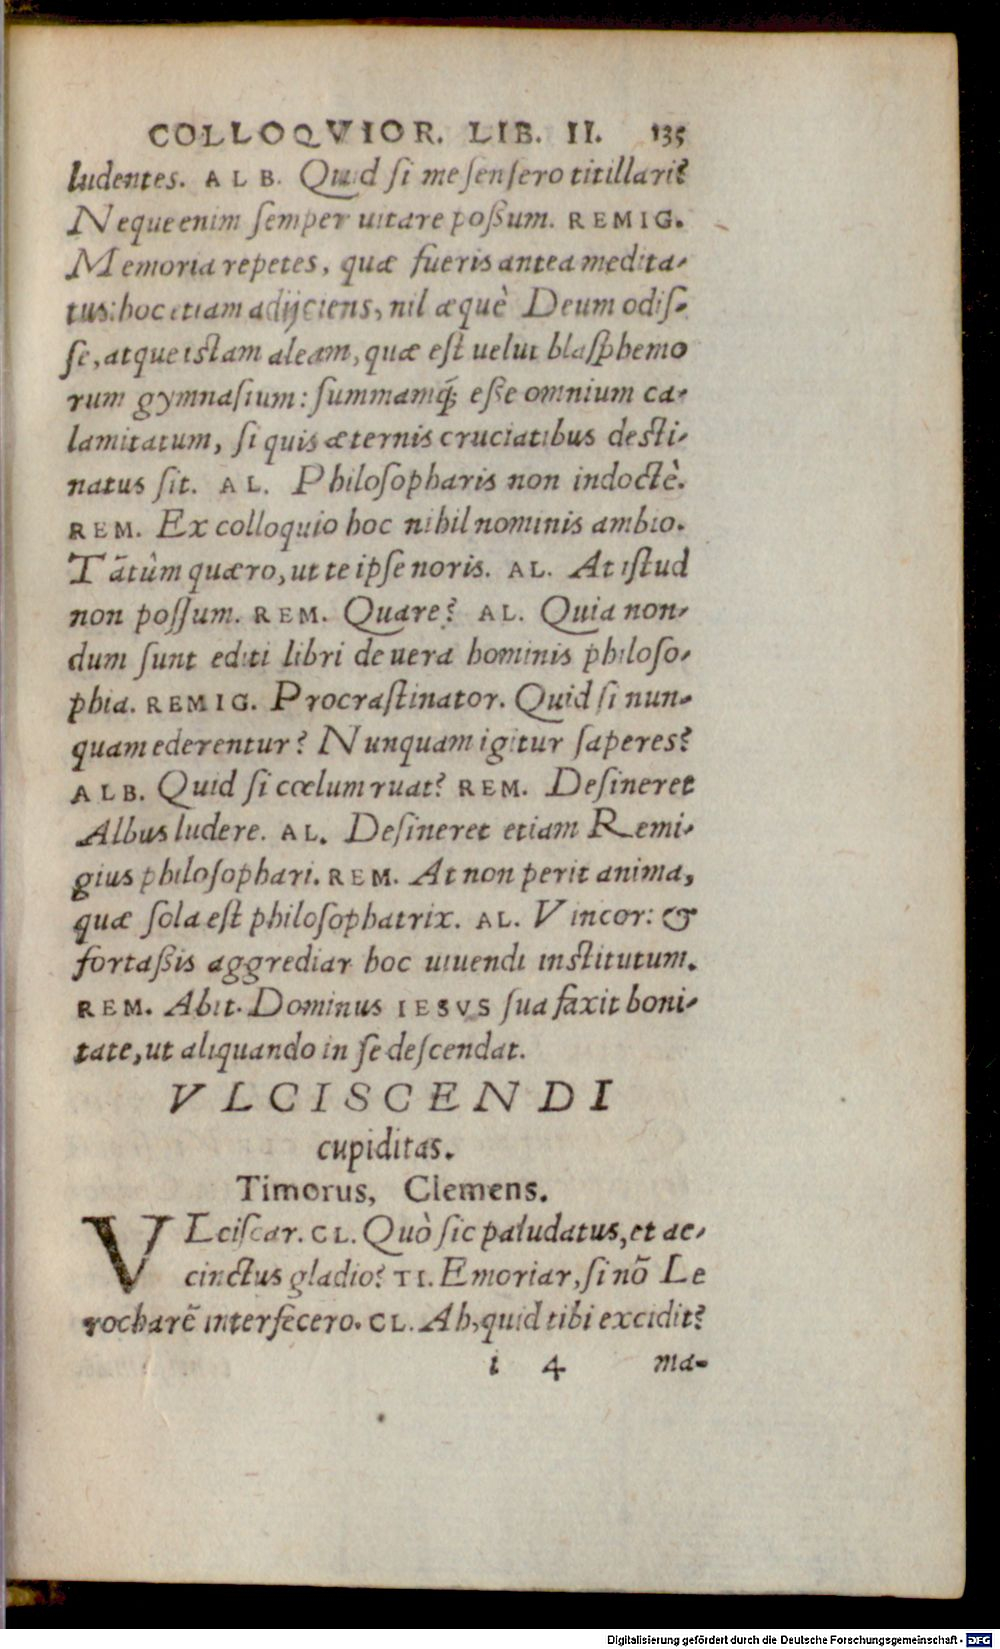 COLLOQVIOR. LIB. II. 135
ludentes. ALB. Quid si me sensero titillari?
Neque enim semper uitare poßum. REMIG.
Memoria repetes, quæ fueris antea medita-
tus: hoc etiam adijciens, nil æquè Deum odis-
se, atque istam aleam, quæ est uelut blasphemo
rum gymnasium: summamq́; eße omnium ca-
lamitatum, si quis æternis cruciatibus desti-
natus sit. AL. Philosopharis non indoctè.
REM. Ex colloquio hoc nihil nominis ambio.
Tātùm quæro, ut te ipse noris. AL. At istud
non possum. REM. Quare? AL. Quia non-
dum sunt editi libri de uera hominis philoso-
phia. REMIG. Procrastinator. Quid si nun-
quam ederentur? Nunquam igitur saperes?
ALB. Quid si cœlum ruat? REM. Desineret
Albus ludere. AL. Desineret etiam Remi-
gius philosophari. REM. At non perit anima,
quæ sola est philosophatrix. AL. Vincor: &
fortaßis aggrediar hoc uiuendi institutum.
REM. Abit. Dominus IESVS sua faxit boni-
tate, ut aliquando in se descendat.
VLCISCENDI
cupiditas.
Timorus, Clemens.
VLciscar. CL. Quò sic paludatus, et ac-
cinctus gladio? TI. Emoriar, si nō Le
rocharē interfecero. CL. Ah, quid tibi excidit?
i 4 ma-
Digitalisierung gefördert durch die Deutsche Forschungsgemeinschaft - DFG